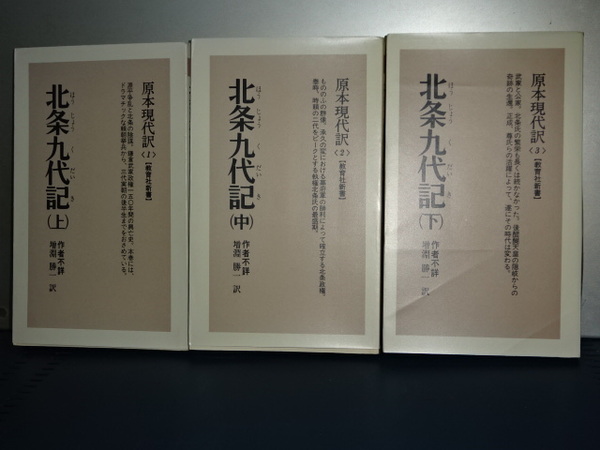 原本現代訳〈1〉【教育社新書】
源平争乱と北条の陰謀。鎌倉武家政権一五〇年間の興亡史。本巻には、
ドラマチックな頼朝挙兵から、三代実朝の後半生までをおさめている。
北条九代記(上)
ほうじょうくだいき
作者不詳
増淵勝一 訳
原本現代訳〈2〉【教育社新書】
もののふの群像。承久の変における幕府軍の勝利によって確立する北条政権。
泰時、時頼の二代をピークとする執権北条氏の最盛期。
北条九代記(中)
ほうじょうくだいき
作者不詳
増淵勝一 訳
原本現代訳〈3〉【教育社新書】
武家と公家。北条氏の繁栄も長くは続かなかった。後醍醐天皇の隠岐からの
奇跡の生還。正成、尊氏らの活躍によって、遂にその時代は変わる。
北条九代記(下)
ほうじょうくだいき
作者不詳
増淵勝一 訳